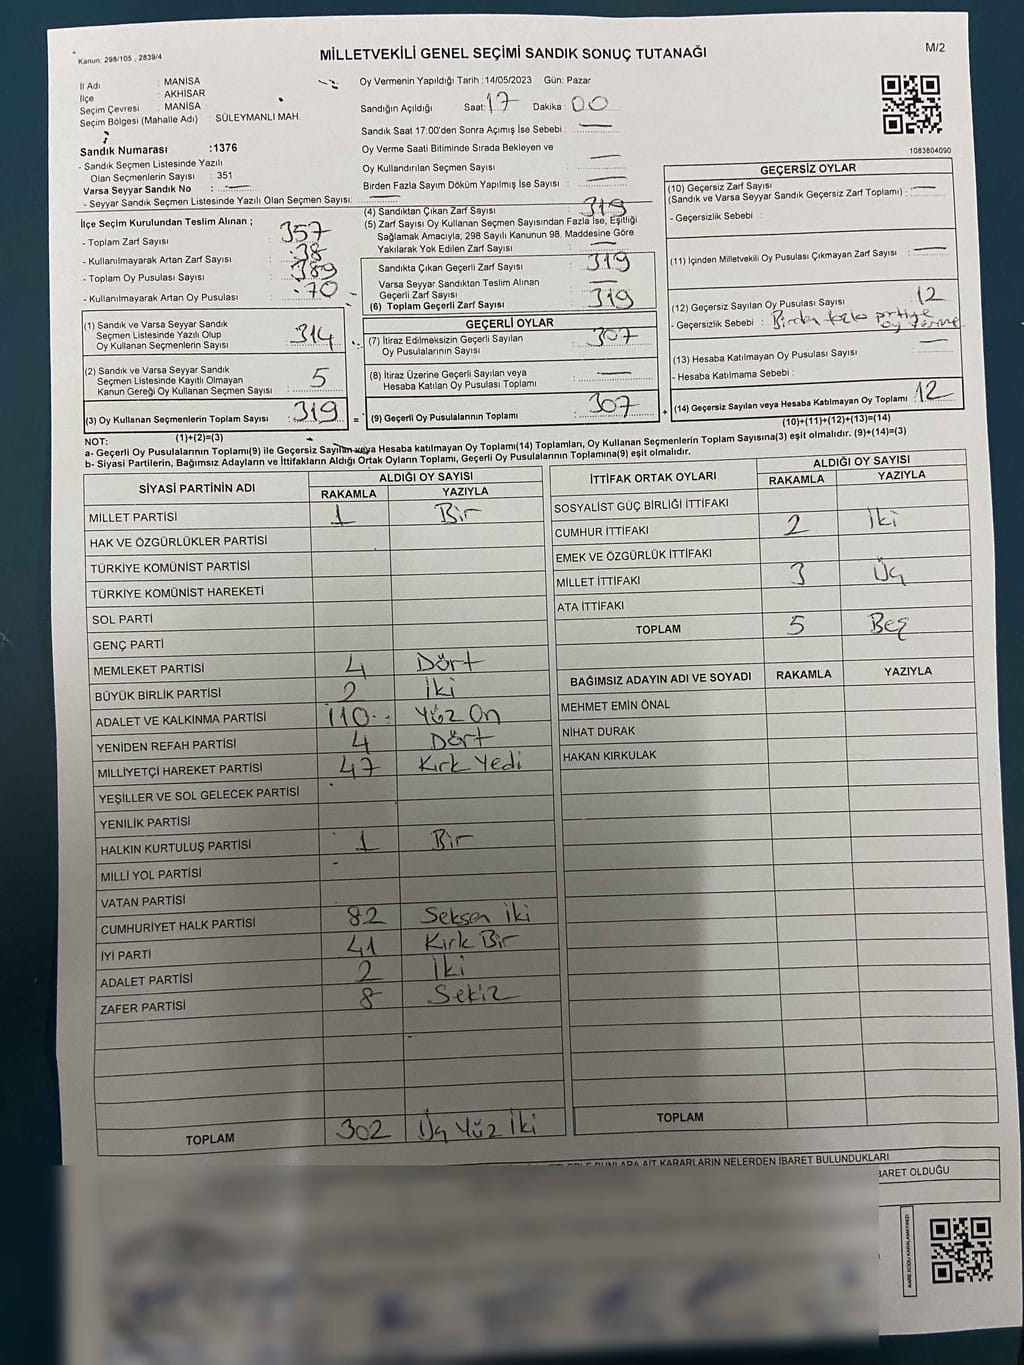 Kanun: 298/105 , 2839/4
MİLLETVEKİLİ GENEL SEÇİMİ SANDIK SONUÇ TUTANAĞI
M/2
İl Adı : MANİSA
İlçe : AKHİSAR
Seçim Çevresi : MANİSA
Seçim Bölgesi (Mahalle Adı) : SÜLEYMANLI MAH.
Sandık Numarası :1376
- Sandık Seçmen Listesinde Yazılı
Olan Seçmenlerin Sayısı : 351
Varsa Seyyar Sandık No :
- Seyyar Sandık Seçmen Listesinde Yazılı Olan Seçmen Sayısı:
Oy Vermenin Yapıldığı Tarih :14/05/2023 Gün: Pazar
Sandığın Açıldığı Saat: 17 Dakika : 00
Sandık Saat 17:00'den Sonra Açımış İse Sebebi :
Oy Verme Saati Bitiminde Sırada Bekleyen ve
Oy Kullandırılan Seçmen Sayısı :
Birden Fazla Sayım Döküm Yapılmış İse Sayısı :
1083804090
İlçe Seçim Kurulundan Teslim Alınan ;
- Toplam Zarf Sayısı : 357
- Kullanılmayarak Artan Zarf Sayısı : 38
- Toplam Oy Pusulası Sayısı : 389
- Kullanılmayarak Artan Oy Pusulası : 70
(1) Sandık ve Varsa Seyyar Sandık
Seçmen Listesinde Yazılı Olup
Oy Kullanan Seçmenlerin Sayısı : 314
(2) Sandık ve Varsa Seyyar Sandık
Seçmen Listesinde Kayıtlı Olmayan
Kanun Gereği Oy Kullanan Seçmen Sayısı : 5
(3) Oy Kullanan Seçmenlerin Toplam Sayısı : 319
(1)+(2)=(3)
(4) Sandıktan Çıkan Zarf Sayısı : 319
(5) Zarf Sayısı Oy Kullanan Seçmen Sayısından Fazla İse, Eşitliği
Sağlamak Amacıyla; 298 Sayılı Kanunun 98. Maddesine Göre
Yakılarak Yok Edilen Zarf Sayısı :
Sandıkta Çıkan Geçerli Zarf Sayısı : 319
Varsa Seyyar Sandıktan Teslim Alınan
Geçerli Zarf Sayısı :
(6) Toplam Geçerli Zarf Sayısı : 319
GEÇERLİ OYLAR
(7) İtiraz Edilmeksizin Geçerli Sayılan
Oy Pusulalarının Sayısı : 307
(8) İtiraz Üzerine Geçerli Sayılan veya
Hesaba Katılan Oy Pusulası Toplamı :
= (9) Geçerli Oy Pusulalarının Toplamı : 307
GEÇERSİZ OYLAR
(10) Geçersiz Zarf Sayısı
(Sandık ve Varsa Seyyar Sandık Geçersiz Zarf Toplamı) :
- Geçersizlik Sebebi :
(11) İçinden Milletvekili Oy Pusulası Çıkmayan Zarf Sayısı :
(12) Geçersiz Sayılan Oy Pusulası Sayısı : 12
- Geçersizlik Sebebi : Birden fazla partiye
oy verme
(13) Hesaba Katılmayan Oy Pusulası Sayısı :
- Hesaba Katılmama Sebebi :
+ (14) Geçersiz Sayılan veya Hesaba Katılmayan Oy Toplamı : 12
(10)+(11)+(12)+(13)=(14)
NOT:
a- Geçerli Oy Pusulalarının Toplamı(9) ile Geçersiz Sayılan veya Hesaba katılmayan Oy Toplamı(14) Toplamları, Oy Kullanan Seçmenlerin Toplam Sayısına(3) eşit olmalıdır. (9)+(14)=(3)
b- Siyasi Partilerin, Bağımsız Adayların ve İttifakların Aldığı Ortak Oyların Toplamı, Geçerli Oy Pusulalarının Toplamına(9) eşit olmalıdır.
SİYASİ PARTİNİN ADI
ALDIĞI OY SAYISI
RAKAMLA YAZIYLA
MİLLET PARTİSİ 1 Bir
HAK VE ÖZGÜRLÜKLER PARTİSİ
TÜRKİYE KOMÜNİST PARTİSİ
TÜRKİYE KOMÜNİST HAREKETİ
SOL PARTİ
GENÇ PARTİ
MEMLEKET PARTİSİ 4 Dört
BÜYÜK BİRLİK PARTİSİ 2 İki
ADALET VE KALKINMA PARTİSİ 110 Yüz On
YENİDEN REFAH PARTİSİ 4 Dört
MİLLİYETÇİ HAREKET PARTİSİ 47 Kırk Yedi
YEŞİLLER VE SOL GELECEK PARTİSİ
YENİLİK PARTİSİ
HALKIN KURTULUŞ PARTİSİ 1 Bir
MİLLİ YOL PARTİSİ
VATAN PARTİSİ
CUMHURİYET HALK PARTİSİ 82 Seksen İki
İYİ PARTİ 41 Kırk Bir
ADALET PARTİSİ 2 İki
ZAFER PARTİSİ 8 Sekiz
TOPLAM 302 Üç Yüz İki
İTTİFAK ORTAK OYLARI
ALDIĞI OY SAYISI
RAKAMLA YAZIYLA
SOSYALİST GÜÇ BİRLİĞİ İTTİFAKI
CUMHUR İTTİFAKI 2 İki
EMEK VE ÖZGÜRLÜK İTTİFAKI
MİLLET İTTİFAKI 3 Üç
ATA İTTİFAKI
TOPLAM 5 Beş
BAĞIMSIZ ADAYIN ADI VE SOYADI RAKAMLA YAZIYLA
MEHMET EMİN ÖNAL
NİHAT DURAK
HAKAN KIRKULAK
TOPLAM
BUNLARA AİT KARARLARIN NELERDEN İBARET BULUNDUKLARI
İBARET OLDUĞU
KARE KODU KARALAMAYINIZ!